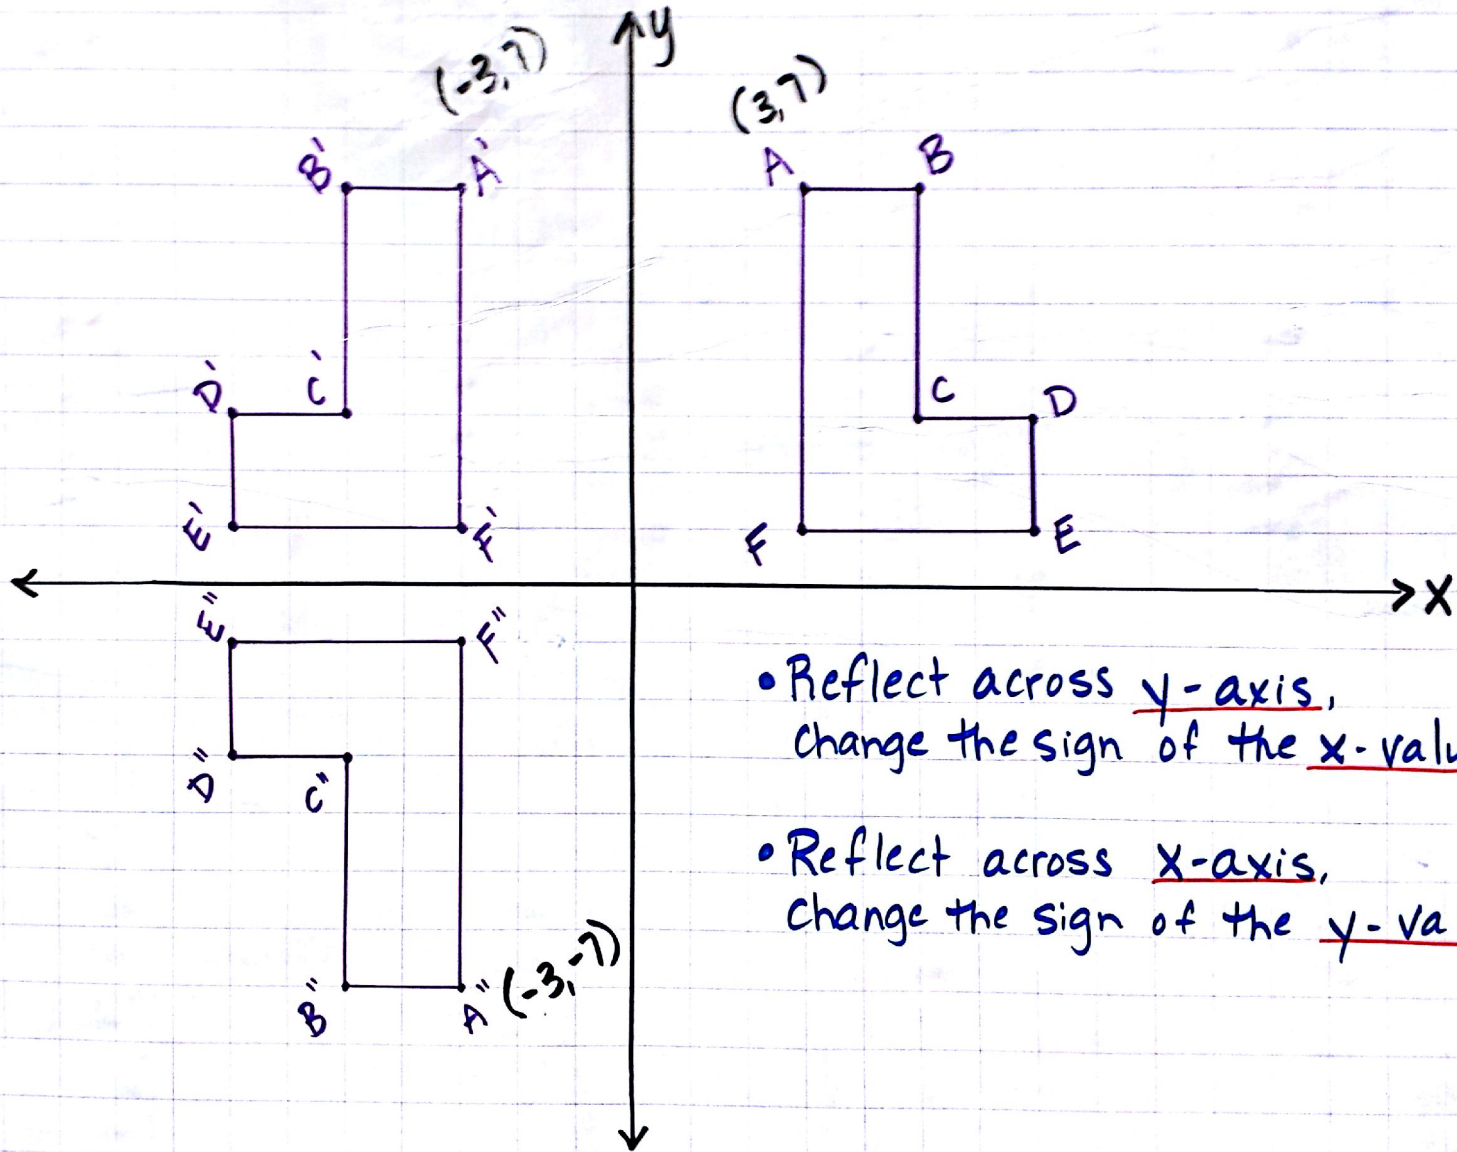 y
(-3,7)
(3,7)
B' A'
A B
D' C'
C D
E' F'
F E
x
E" F"
D" C"
B" A" (-3,-7)
• Reflect across y-axis,
change the sign of the x-valu
• Reflect across x-axis,
change the sign of the y-va